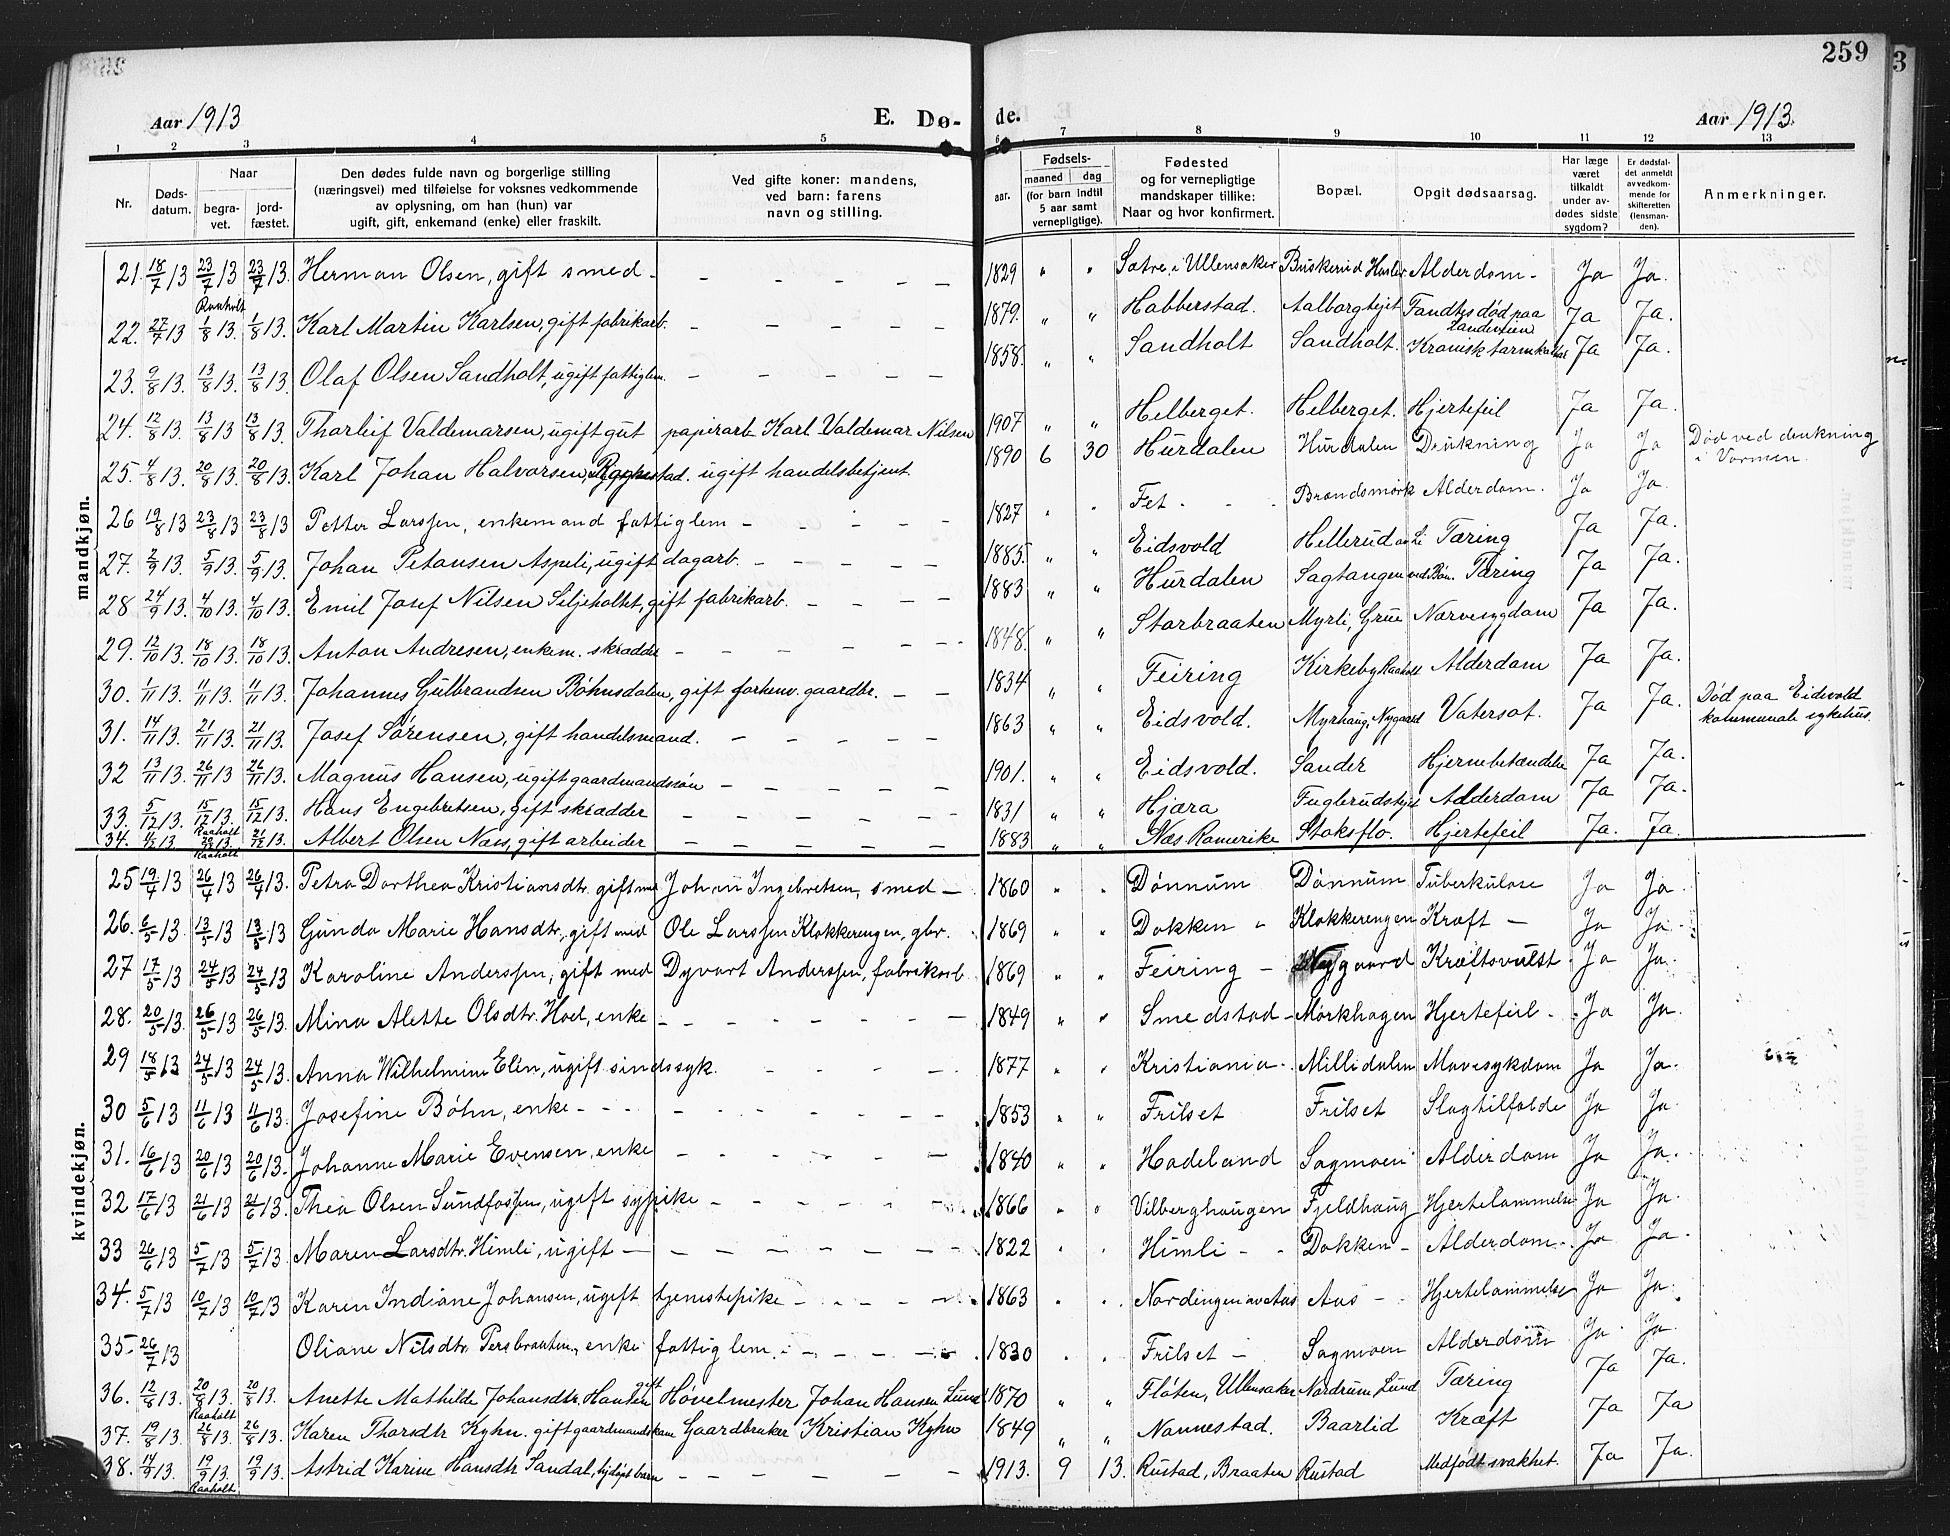 259
Aar 1913
E. Dø-
de.
Aar 1913.
1 2 3 4 5 6 7 8 9 10 11 12 13
Nr. Døds-datum. Naar begra-vet. jord-fæstet. Den dødes fulde navn og borgerlige stilling (næringsvei) med tilføielse for voksnes vedkommende av oplysning, om han (hun) var ugift, gift, enkemand (enke) eller fraskilt. Ved gifte koner: mandens, ved barn: farens navn og stilling. aar. Fødsels- maaned dag (for barn indtil 5 aar samt vernepligtige). Fødested og for vernepligtige mandskaper tillike: Naar og hvor konfirmert. Bopæl. Opgit dødsaarsag. Har læge været tilkaldt under av-dødes sidste sygdom? Er dødsfal-det anmeldt av vedkom-mende for skifteretten (lensman-den). Anmerkninger.
mandkjøn.
21. 18/7 13 23/7 13 23/7 13. Herman Olsen, gift smed - 1829 " " Sætre i Ullensaker Buskerud Alderdom - Ja Ja.
Raaholt
22. 27/7 13 1/8 13. 1/8 13. Karl Martin Karlsen, gift fabrikarb. 1879. " " Habberstad. Fandtes død paa Ja Ja.
23. 9/8 13. 13/8 13. 13/8 13. Olaf Olsen Sandholt, ugift fattiglem. 1858. " " Sandholt Sandholt. Kronisk Ja Ja.
24. 12/8 13. 13/8 13 13/8 13. Thorleif Valdemarsen, ugift gut papirarb Karl Valdemar Nilsen 1907 " " Helberget. Helberget. Hjertefeil Ja Ja.
25. 4/8 13. 20/8 13 20/8 13. Karl Johan Halvorsen, ugift handelsbetjent 1890 6 30 Hurdalen Hurdalen Drukning Ja Ja Død ved drukning i Vormen.
26 19/8 13 23/8 13 23/8 13 Petter Larssen, enkemand fattiglem - 1827 " " Fet - Brandsmork Alderdom. Ja Ja.
27. 2/9 13. 5/9 13. 5/9 13. Johan Petansen Aspeli, ugift dagarb. 1885. " " Eidsvold Hellerud Tæring Ja Ja.
28 24/9 13. 4/10 13. 4/10 13. Emil Josef Nilsen Seljeholtet, gift fabrikarb. 1883 " " Hurdalen Sagtangen ved Bøn. Tæring Ja Ja.
29. 12/10 13. 18/10 13. 18/10 13. Anton Andresen, enkem. skrædde 1848. " " Storbraaten Myrli, Grue Nervesygdom Ja Ja.
30. 1/11 13. 11/11 13. 11/11 13. Johannes Gulbrandsen Bøhnsdalen, gift forhenv. gaardbr. 1834 " " Feiring Kirkeby Raaholt Alderdom Ja Ja.
31. 14/11 13. 21/11 13. 21/11 13. Josef Sørensen, gift handelsmand. 1863 " " Eidsvold. Myrhaug, Nygaard Vatersot. Ja Ja. Død paa Eidsvold kommunale sykehus.
32 13/11 13. 26/11 13 26/11 13. Magnus Hansen, ugift gaardmandssøn 1901. " " Eidsvold. Sander Hjernebetændelse Ja Ja.
33. 5/12 13. 15/12 13. 15/12 13. Hans Engebretsen, gift skrædder 1831 " " Hjæra Alderdom Ja Ja.
Raaholt
34. 13 13. 21/12 13. Albert Olsen Næs, gift arbeider 1883 " " Næs Romerike Stoksflo. Hjertefeil Ja. Ja.
Raaholt
kvindekjøn.
25 19/4 13 26/4 13 26/4 13. Petra Dorthea Kristiansdtr. gift med Johan Ingebretsen, smed - 1860 " " Dönnum Dönnum Tuberkulose Ja Ja.
26. 6/5 13. 13/5 13. 13/5 13 Gunda Marie Hansdtr., gift med Ole Larssen Klokkerengen, gbr. 1869 " " Dokken " Klokkerengen Kræft - Ja Ja.
27 17/5 13 24/5 13 24/5 13. Karoline Anderssen, gift med Dyvart Anderssen, fabrikarb 1869 " " Feiring - Nygaard Kræftsvulst Ja Ja.
28. 20/5 13. 26/5 13 26/5 13. Mina Alette Olsdtr. Hoel, enke 1849 " " Smedstad - Mörkhagen Hjertefeil - Ja Ja.
29 18/5 13 24/5 13 24/5 13. Anna Wilhelmine Elin, ugift sindssyk. 1877 " " Kristiania - Millidalen Mavesykdom Ja Ja.
30 5/6 13 11/6 13 11/6 13. Josefine Bøhn, enke - 1853 " " Frilset Frilset Slagtilfælde Ja Ja.
31. 16/6 13 20/6 13 20/6 13. Johanne Marie Evensen, enke 1840 " " Hadeland Sagmoen Alderdom Ja Ja.
32 17/6 13 21/6 13 21/6 13. Thea Olsen Sundfossen, ugift sypike - 1866 " " Vilberghaugen Fjeldhaug Hjertelammelse Ja Ja.
33 26/6 13 5/7 13 5/7 13. Maren Larsdtr. Himli, ugift - 1822 " " Himli - Dokken - Alderdom - Ja Ja.
34. 5/7 13 10/7 13 10/7 13 Karen Indiane Johansen, ugift tjenestepike - 1863 " " Nordengen av Aas Aas - Hjertelammelse Ja Ja.
35 - 26/7 13 Oliane Nilsdtr. Persbraaten, enke fattiglem. 1830 " " Frilset - Sagmoen Alderdom Ja Ja.
36. 12/8 13. 20/8 13. 20/8 13. Anette Mathilde Johansdtr. Hansen gift Høvelmester Johan Hansen Lund 1870 " " Fløten, Ullensaker Nordrum Lund Tæring Ja Ja.
Raaholt
37. 19/8 13. 26/8 13. 26/8 13. Karen Thorsdtr Kyhn. gift gaardmandskone Gaardbruker Kristian Kyhn 1849 " " Nannestad. Baarlid Kræft Ja Ja
38. 14/9 13. 19/9 13. 19/9 13. Astrid Karine Hansdtr Sandal, barn 1913. 9 13. Rustad, Braaten Rustad Medfødt svakhet. Ja Ja.
Raaholt